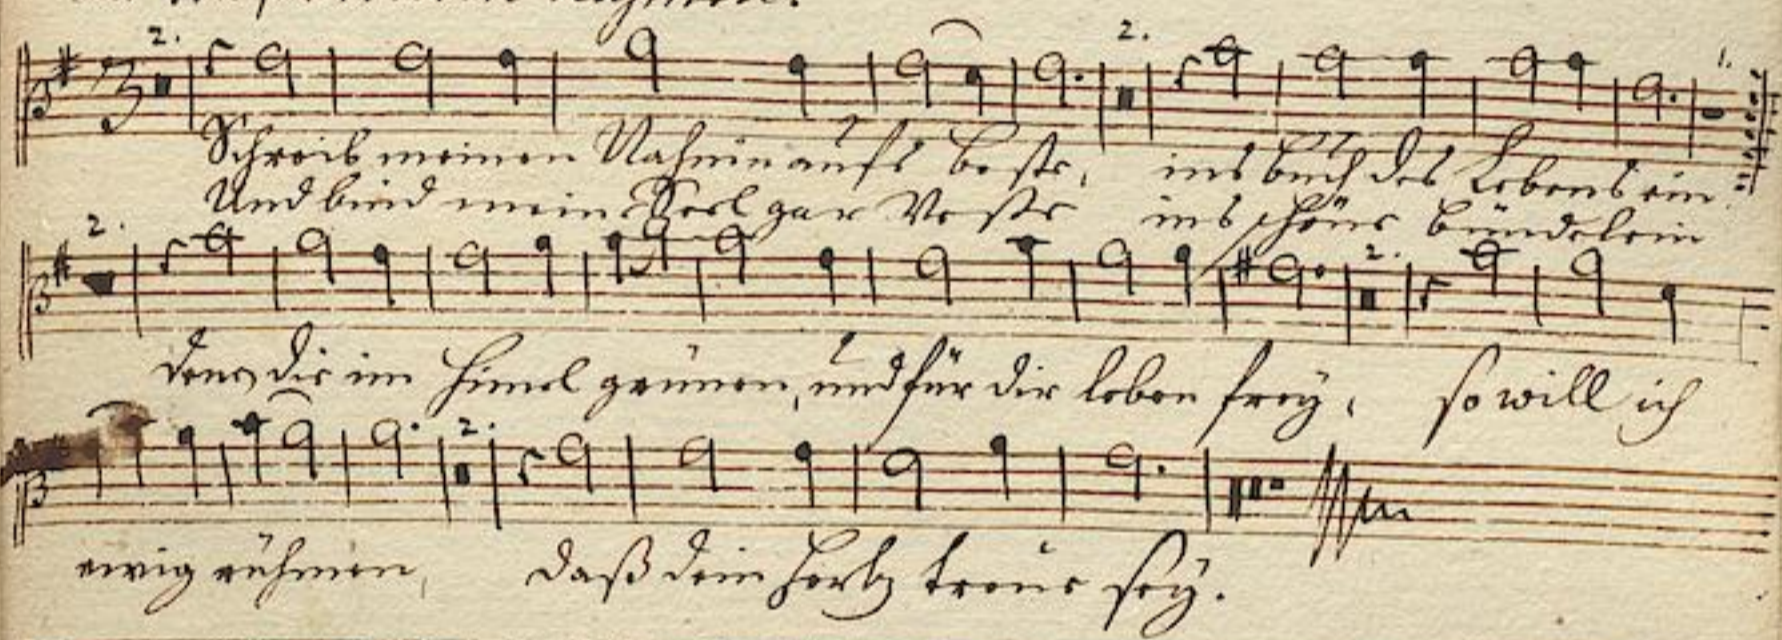 2. 2. 1.
Schreib meinen Nahmen aufs beste, ins buch des Lebens ein.
Und bind mein Seel gar Veste ins schöne bündelein
2. 2.
derer, die im Himel grünen, und für dir leben freÿ, so will ich
2.
ewig rühmen, daß dein Hertz treue seÿ.